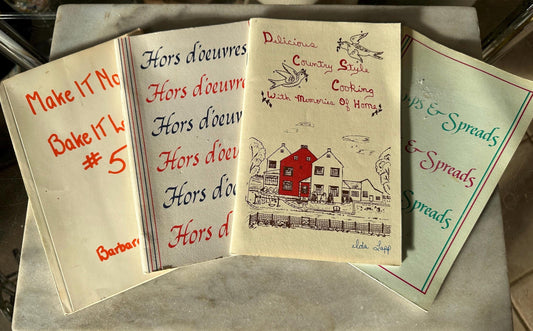 Make IT No
Bake IT L
#5
Barbar
Hors d'oeuvres
Hors d'oeuvre
Hors d'oeuvr
Hors d'oeuv
Hors d'oeu
Hors d'oe
Delicious
Country Style
Cooking
With Memories Of Home
Ida Zapp
ps & Spreads
& Spreads
Spreads